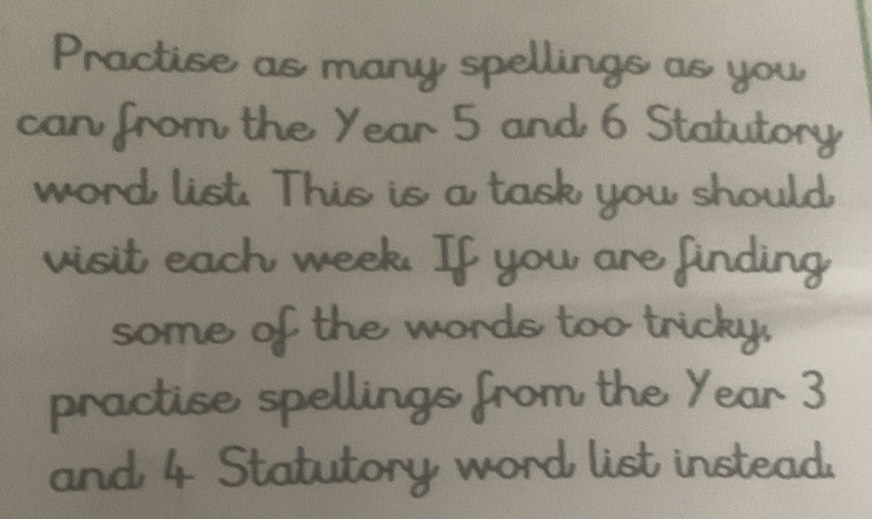 Practise as many spellings as you
can from the Year 5 and 6 Statutory
word list. This is a task you should
visit each week. If you are finding
some of the words too tricky,
practise spellings from the Year 3
and 4 Statutory word list instead.